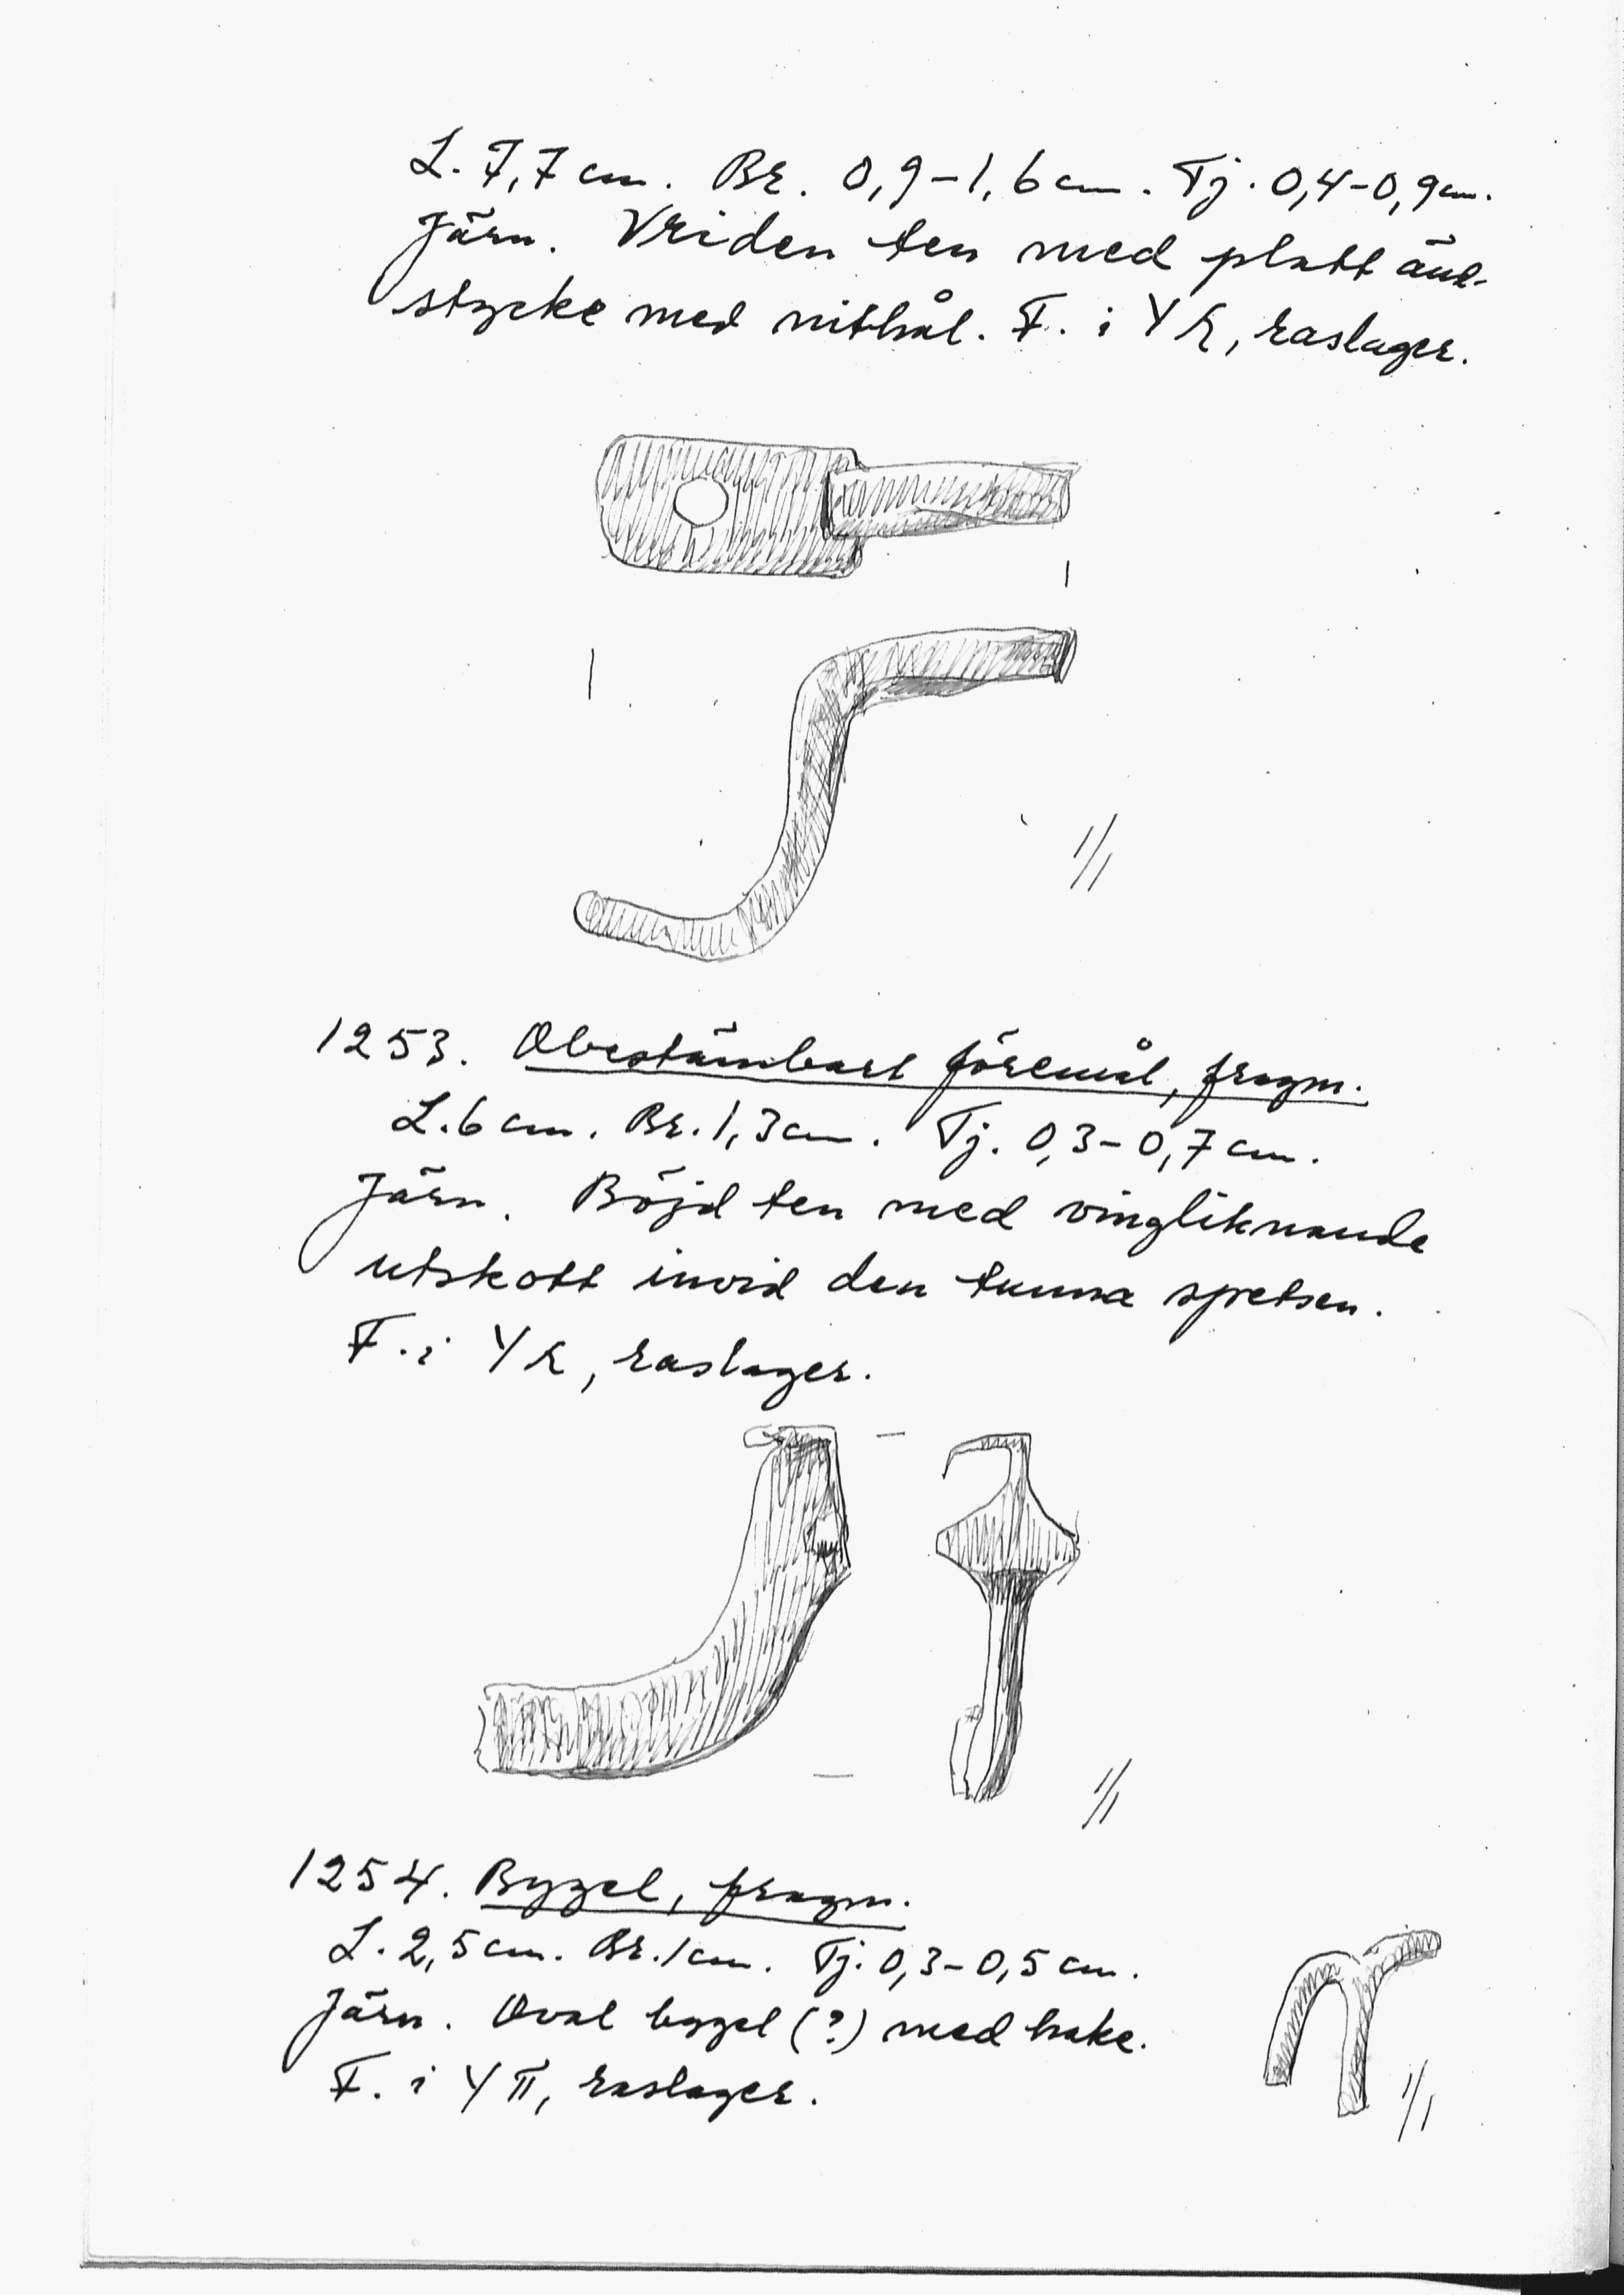 L. 7,7 cm. Br. 0,9-1,6 cm. Tj. 0,4-0,9 cm.
Järn. Vriden ten med platt änd-
stycke med nithål. F. i YK, raslager.
1/1
1253. Obestämbart föremål, fragm.
L. 6 cm. Br. 1,3 cm. Tj. 0,3-0,7 cm.
Järn. Böjd ten med vingliknande
utskott invid den tunna spetsen.
F. i YK, raslager.
1/1
1254. Bygel, fragm.
L. 2,5 cm. Br. 1 cm. Tj. 0,3-0,5 cm.
Järn. Oval bygel (?) med hake.
F. i YΠ, raslager.
1/1